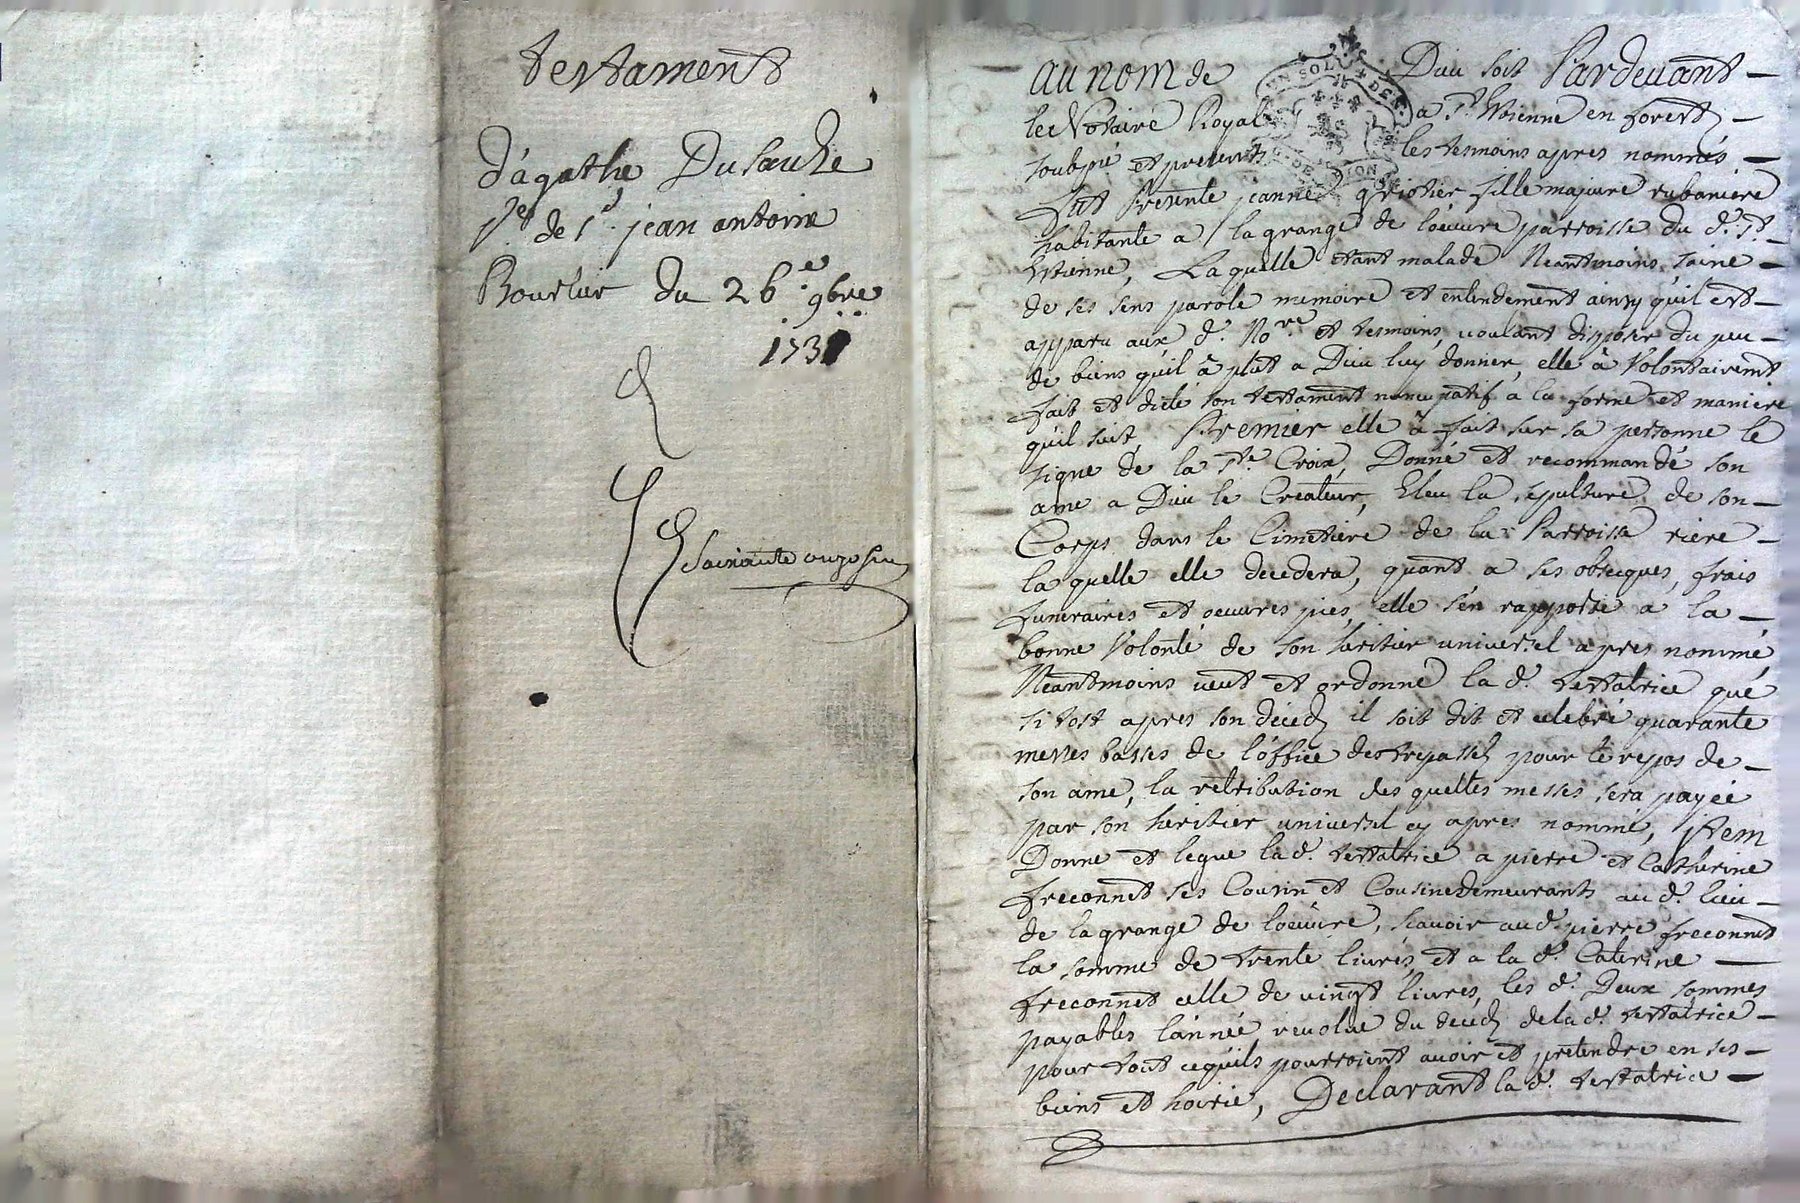 testament
d'agathe Dusauze
fe. de sr. jean antoine
Bourlier du 26e. 9bre
1731
Soixante onzesieme
UN SOL DEN.
G. DE LYON
au nom de Dieu soit Pardevant
le Notaire Royal a St. Estienne en forest
soubsné et presents les tesmoins apres nommés
fut presente jeanne griotier fille majeure rubaniere
habitante a la grange de loeuvre parroisse du d. St.
Estienne, Laquelle etant malade Neantmoins saine
de ses sens parole memoire et entendement ainsy quil est
apparu aux d. Nore. et tesmoins, voulant disposer du peu
de biens qu'il à plut a Dieu luy donner, elle à Volontairemt
fait et dicté son testament noncupatif a la forme et maniere
qu'il suit, Premier elle à fait sur sa personne le
signe de la Ste. Croix, Donné et recommandé son
ame a Dieu le Createur, Eleu la sepulture de son
Corps dans le Cimetiere de la Parroisse riere
laquelle elle decedera, quant a ses obseques, frais
funeraires et oeuvres pies, elle s'en rapporte a la
bonne Volonté de son heritier universel apres nommé
Neantmoins veut et ordonne la d. testatrice que
sitost apres son décéd il soit dit et celebré quarante
messes basses de l'office des trepassés pour le repos de
son ame, la retribution des quelles messes sera payée
par son heritier universel cy apres nommé, jtem
Donne et legue la d. testatrice a pierre et Catherine
freconnet ses Cousin et Cousine demeurants au d. lieu
de la grange de loeuvre, scavoir au d. pierre freconnet
la somme de trente livres, et a la d. Caterine
freconnet celle de vingt livres, les d. Deux sommes
payables l'année revolue du deced de la d. testatrice
pour tout ce qu'ils pourroient avoir et pretendre en ses
biens et hoirie, Declarant la d. testatrice